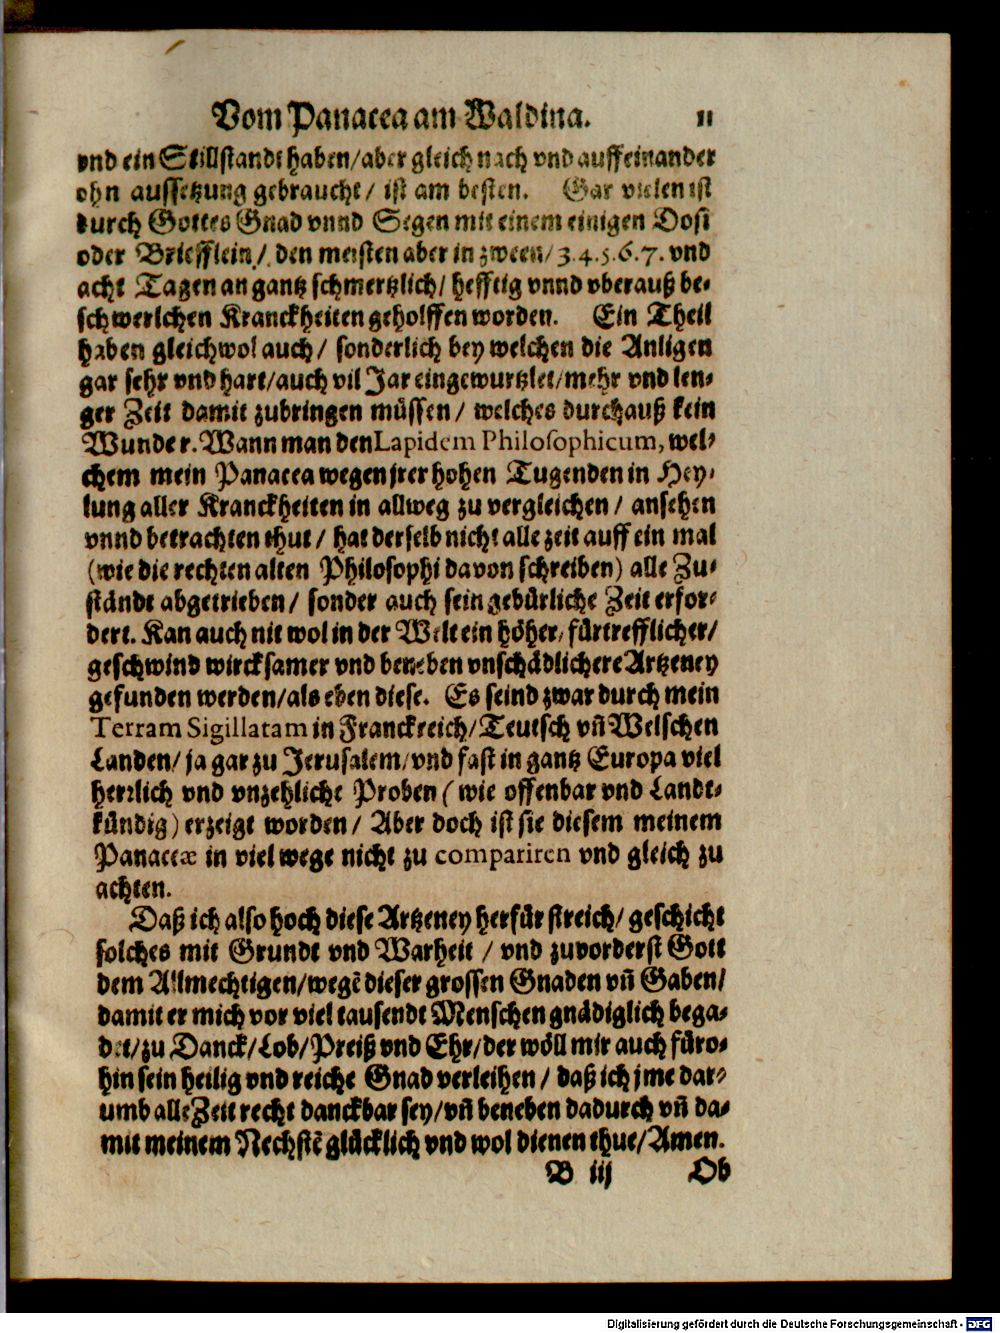 Vom Panacea am Waldina. 11
vnd ein Stillstandt haben/aber gleich nach vnd auff einander
ohn aussetzung gebraucht/ ist am besten. Gar vielen ist
durch Gottes Gnad vnnd Segen mit einem einigen Dosi
oder Briefflein/ den meisten aber in zween/3.4.5.6.7. vnd
acht Tagen an gantz schmertzlich/ hefftig vnnd vberauß be-
schwerlchen Kranckheiten geholffen worden. Ein Theil
haben gleichwol auch/ sonderlich bey welchen die Anligen
gar sehr vnd hart/auch vil Jar eingewurtzlet/mehr vnd len-
ger Zeit damit zubringen müssen/ welches durchauß kein
Wunder. Wann man den Lapidem Philosophicum, wel-
chem mein Panacea wegen jrer hohen Tugenden in Hey-
lung aller Kranckheiten in allweg zu vergleichen/ ansehen
vnnd betrachten thut/ hat derselb nicht alle zeit auff ein mal
(wie die rechten alten Philosophi davon schreiben) alle Zu-
ständt abgetrieben/ sonder auch sein gebürliche Zeit erfor-
dert. Kan auch nit wol in der Welt ein höher, fürtrefflicher/
geschwind wircksamer vnd beneben vnschädlichere Artzeney
gefunden werden/als eben diese. Es seind zwar durch mein
Terram Sigillatam in Franckreich/Teutsch vñ Welschen
Landen/ ja gar zu Jerusalem/vnd fast in gantz Europa viel
herrlich vnd vnzehliche Proben (wie offenbar vnd Landt-
kündig) erzeigt worden/ Aber doch ist sie diesem meinem
Panaceæ in viel wege nicht zu compariren vnd gleich zu
achten.
Daß ich also hoch diese Artzeney herfür streich/ geschicht
solches mit Grundt vnd Warheit/ vnd zuvorderst Gott
dem Allmechtigen/wegẽ dieser grossen Gnaden vñ Gaben/
damit er mich vor viel tausendt Menschen gnädiglich bega-
det/zu Danck/Lob/Preiß vnd Ehr/der wöll mir auch füro-
hin sein heilig vnd reiche Gnad verleihen/ daß ich jme dar-
umb alle Zeit recht danckbar sey/vñ beneben dadurch vñ da-
mit meinem Nechstẽ glücklich vnd wol dienen thue/Amen.
B iij Ob
Digitalisierung gefördert durch die Deutsche Forschungsgemeinschaft - DFG